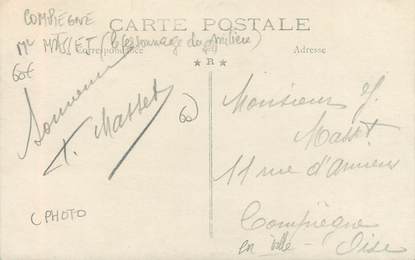 CARTE POSTALE
COMPIEGNE
Mr MASSET (Personnage du milieu)
60€
Correspondance
Adresse
★ R ★
Souvenir
F. Masset
60
C PHOTO
Monsieur F.
Masset
11 rue d'Amiens
Compiègne
en ville - Oise